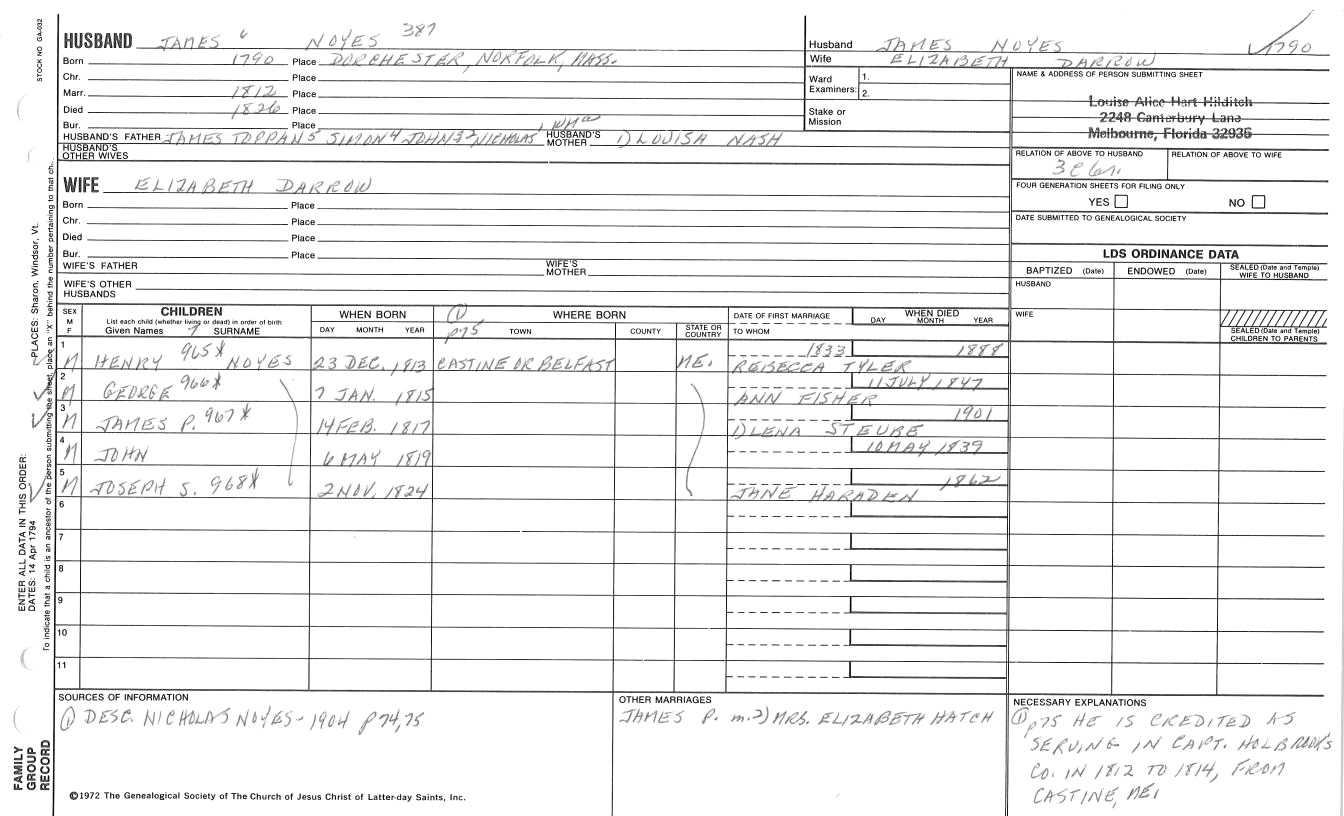 STOCK NO GA-032
HUSBAND JAMES 6 NOYES 387
Born 1790 Place DORCHESTER, NORFOLK, MASS.
Chr. Place
Marr. 1812 Place
Died 1826 Place
Bur. Place
HUSBAND'S FATHER JAMES TOPPAN5 SIMON4 JOHN32 NICHOLAS1 HUSBAND'S MOTHER 1) LOUISH NASH
HUSBAND'S OTHER WIVES
Husband JAMES NOYES 1790
Wife ELIZABETH DARROW
Ward Examiners: 1.
2.
Stake or Mission
NAME & ADDRESS OF PERSON SUBMITTING SHEET
Louise Alice Hart Hilditch
2248 Canterbury Lane
Melbourne, Florida 32935
RELATION OF ABOVE TO HUSBAND RELATION OF ABOVE TO WIFE
FOUR GENERATION SHEETS FOR FILING ONLY
YES NO
DATE SUBMITTED TO GENEALOGICAL SOCIETY
WIFE ELIZABETH DARROW
Born Place
Chr. Place
Died Place
Bur. Place
WIFE'S FATHER WIFE'S MOTHER
WIFE'S OTHER HUSBANDS
LDS ORDINANCE DATA
BAPTIZED (Date) ENDOWED (Date) SEALED (Date and Temple) WIFE TO HUSBAND
HUSBAND
WIFE
SEALED (Date and Temple) CHILDREN TO PARENTS
SEX M F
CHILDREN
List each child (whether living or dead) in order of birth
Given Names 7 SURNAME
WHEN BORN
DAY MONTH YEAR
① p75
WHERE BORN
TOWN COUNTY STATE OR COUNTRY
DATE OF FIRST MARRIAGE
TO WHOM
WHEN DIED
DAY MONTH YEAR
1 M HENRY 965X NOYES 23 DEC. 1813 CASTINE OR BELFAST ME. 1833 1888
REBECCA TYLER
2 M GEORGE 966X 7 JAN. 1815 11 JULY 1847
ANN FISHER
3 M JAMES P. 967X 14 FEB. 1817 1901
DLENA STEUBE
4 M JOHN 6 MAY 1819 10 MAY 1839
5 M JOSEPH S. 968X 2 NOV. 1824 1862
JANE HARADEN
6
7
8
9
10
11
SOURCES OF INFORMATION
① DESC. NICHOLAS NOYES - 1904 p74,75
©1972 The Genealogical Society of The Church of Jesus Christ of Latter-day Saints, Inc.
OTHER MARRIAGES
JAMES P. m. 2) MRS. ELIZABETH HATCH
NECESSARY EXPLANATIONS
① p75 HE IS CREDITED AS
SERVING IN CAPT. HOLBROOK'S
CO. IN 1812 TO 1814, FROM
CASTINE, ME.
ENTER ALL DATA IN THIS ORDER:
DATES: 14 Apr 1794
PLACES: Sharon, Windsor, Vt.
To indicate that a child is an ancestor of the person submitting the sheet, place an "X" behind the number pertaining to that ch.
FAMILY
GROUP
RECORD